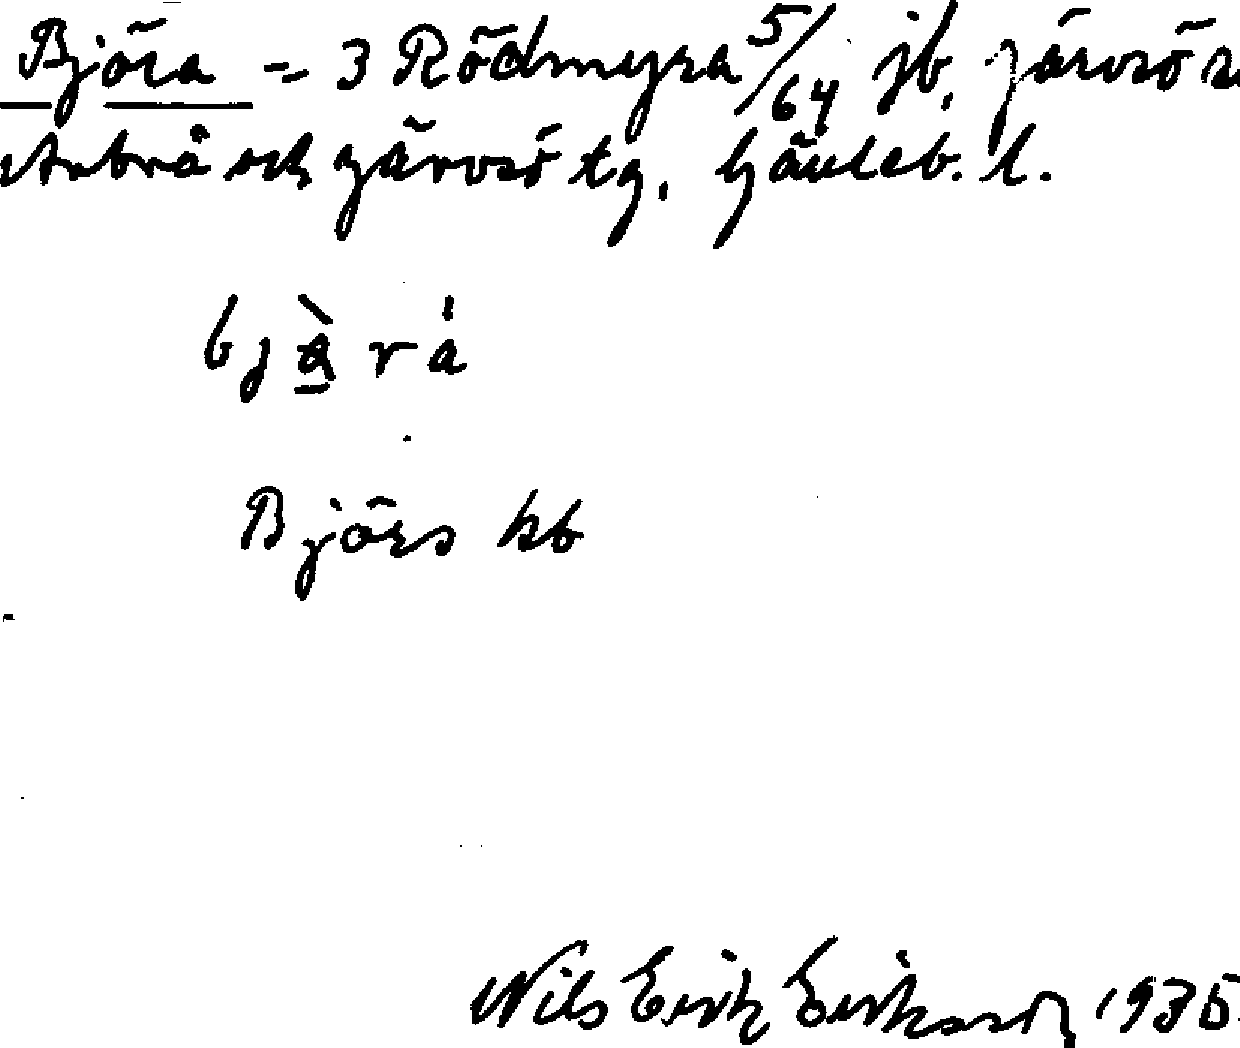 Björs = 3 Rödmyra 5/64 jb, Järvsö s
Arbrå och Järvsö tg. Gävleb. l.
bjà̱rá
Björs kb
Nils Erik Eriksson 1935